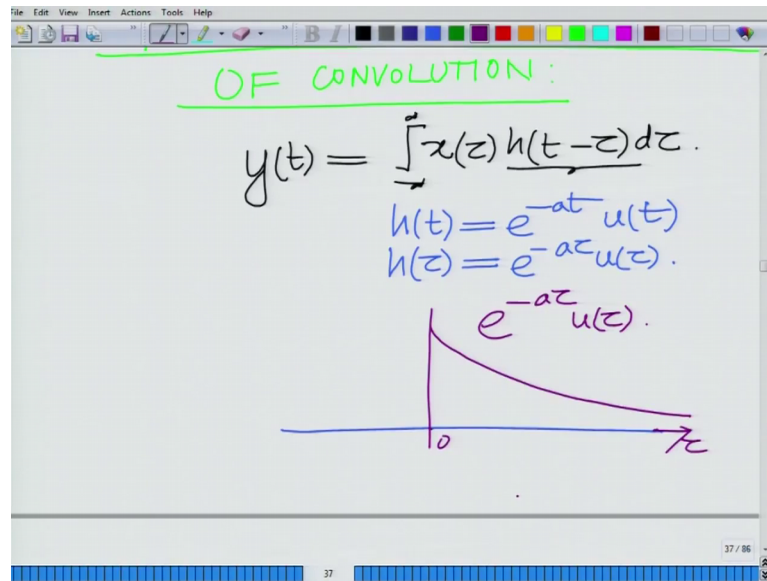 File Edit View Insert Actions Tools Help
B I
OF CONVOLUTION:
y(t) = ∫_{-∞}^{∞} x(τ) h(t-τ) dτ.
h(t) = e^{-at} u(t)
h(τ) = e^{-aτ} u(τ).
e^{-aτ} u(τ).
0
τ
37 / 86
37